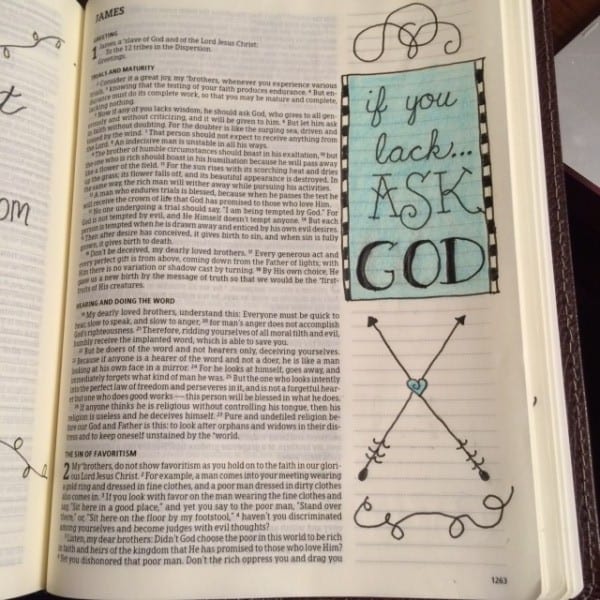 JAMES
GREETING
1 James, a slave of God and of the Lord Jesus Christ:
To the 12 tribes in the Dispersion.
Greetings.
TRIALS AND MATURITY
2 Consider it a great joy, my brothers, whenever you experience various
trials, 3 knowing that the testing of your faith produces endurance. 4 But en-
durance must do its complete work, so that you may be mature and complete,
lacking nothing.
5 Now if any of you lacks wisdom, he should ask God, who gives to all gen-
erously and without criticizing, and it will be given to him. 6 But let him ask
in faith without doubting. For the doubter is like the surging sea, driven and
tossed by the wind. 7 That person should not expect to receive anything from
the Lord. 8 An indecisive man is unstable in all his ways.
9 The brother of humble circumstances should boast in his exaltation, 10 but
the one who is rich should boast in his humiliation because he will pass away
like a flower of the field. 11 For the sun rises with its scorching heat and dries
up the grass; its flower falls off, and its beautiful appearance is destroyed. In
the same way, the rich man will wither away while pursuing his activities.
12 A man who endures trials is blessed, because when he passes the test he
will receive the crown of life that God has promised to those who love Him.
13 No one undergoing a trial should say, "I am being tempted by God." For
God is not tempted by evil, and He Himself doesn't tempt anyone. 14 But each
person is tempted when he is drawn away and enticed by his own evil desires.
15 Then after desire has conceived, it gives birth to sin, and when sin is fully
grown, it gives birth to death.
16 Don't be deceived, my dearly loved brothers. 17 Every generous act and
every perfect gift is from above, coming down from the Father of lights; with
Him there is no variation or shadow cast by turning. 18 By His own choice, He
gave us a new birth by the message of truth so that we would be the first-
fruits of His creatures.
HEARING AND DOING THE WORD
19 My dearly loved brothers, understand this: Everyone must be quick to
hear, slow to speak, and slow to anger, 20 for man's anger does not accomplish
God's righteousness. 21 Therefore, ridding yourselves of all moral filth and evil,
humbly receive the implanted word, which is able to save you.
22 But be doers of the word and not hearers only, deceiving yourselves.
23 Because if anyone is a hearer of the word and not a doer, he is like a man
looking at his own face in a mirror. 24 For he looks at himself, goes away, and
immediately forgets what kind of man he was. 25 But the one who looks intently
into the perfect law of freedom and perseveres in it, and is not a forgetful hear-
er but one who does good works — this person will be blessed in what he does.
26 If anyone thinks he is religious without controlling his tongue, then his
religion is useless and he deceives himself. 27 Pure and undefiled religion be-
fore our God and Father is this: to look after orphans and widows in their dis-
tress and to keep oneself unstained by the world.
THE SIN OF FAVORITISM
2 My brothers, do not show favoritism as you hold on to the faith in our glori-
ous Lord Jesus Christ. 2 For example, a man comes into your meeting wearing
a gold ring and dressed in fine clothes, and a poor man dressed in dirty clothes
also comes in. 3 If you look with favor on the man wearing the fine clothes and
say, "Sit here in a good place," and yet you say to the poor man, "Stand over
there," or, "Sit here on the floor by my footstool," 4 haven't you discriminated
among yourselves and become judges with evil thoughts?
5 Listen, my dear brothers: Didn't God choose the poor in this world to be rich
in faith and heirs of the kingdom that He has promised to those who love Him?
6 Yet you dishonored that poor man. Don't the rich oppress you and drag you
if you
lack...
ASK
GOD
1263